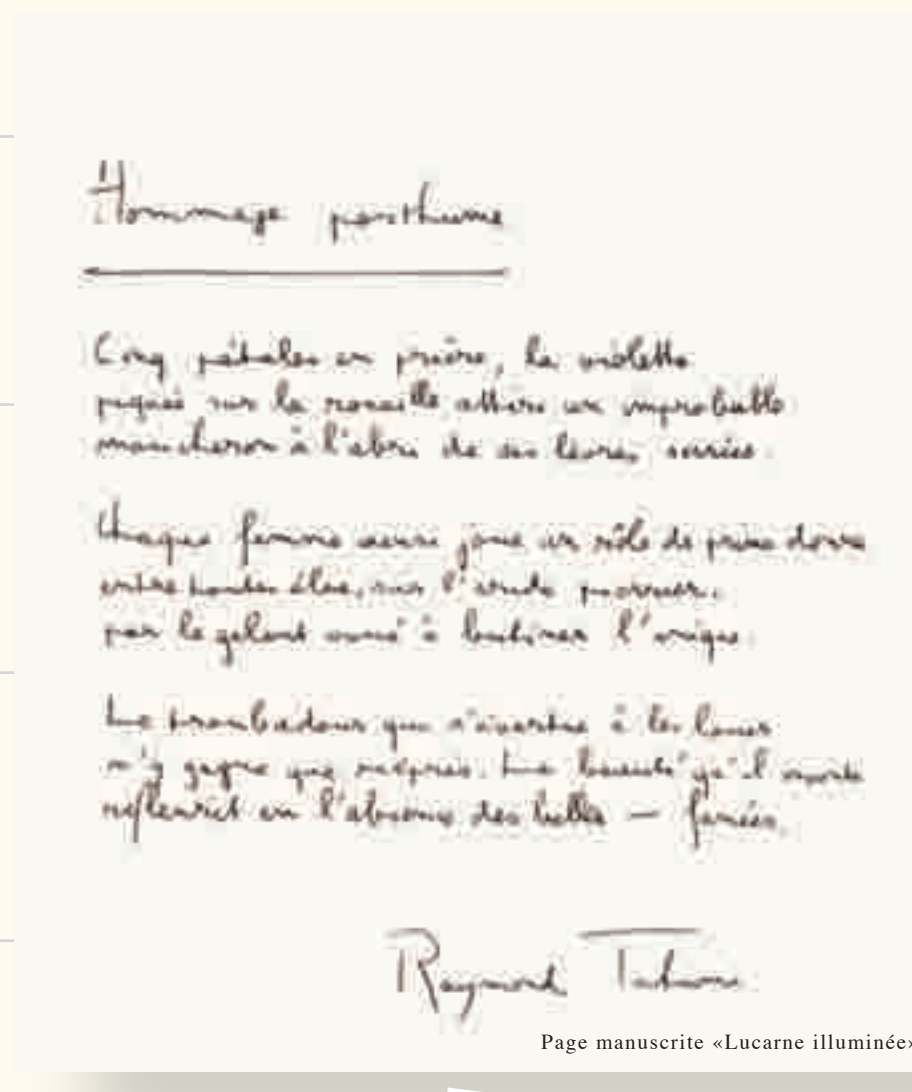 Hommage posthume
Cinq pétales en prière, la violette
piquée sur la rocaille attire un improbable
moucheron à l'abri de ses lèvres serrées.
Chaque femme aussi joue un rôle de prima donna
entre toutes élue, sur l'onde
par le galant voué à butiner l'unique.
Le troubadour qui s'évertue à les louer
n'y gagne que mépris. La beauté qu'il
refleurit en l'absence des belles — fanées.
Raymond
Page manuscrite «Lucarne illuminée»